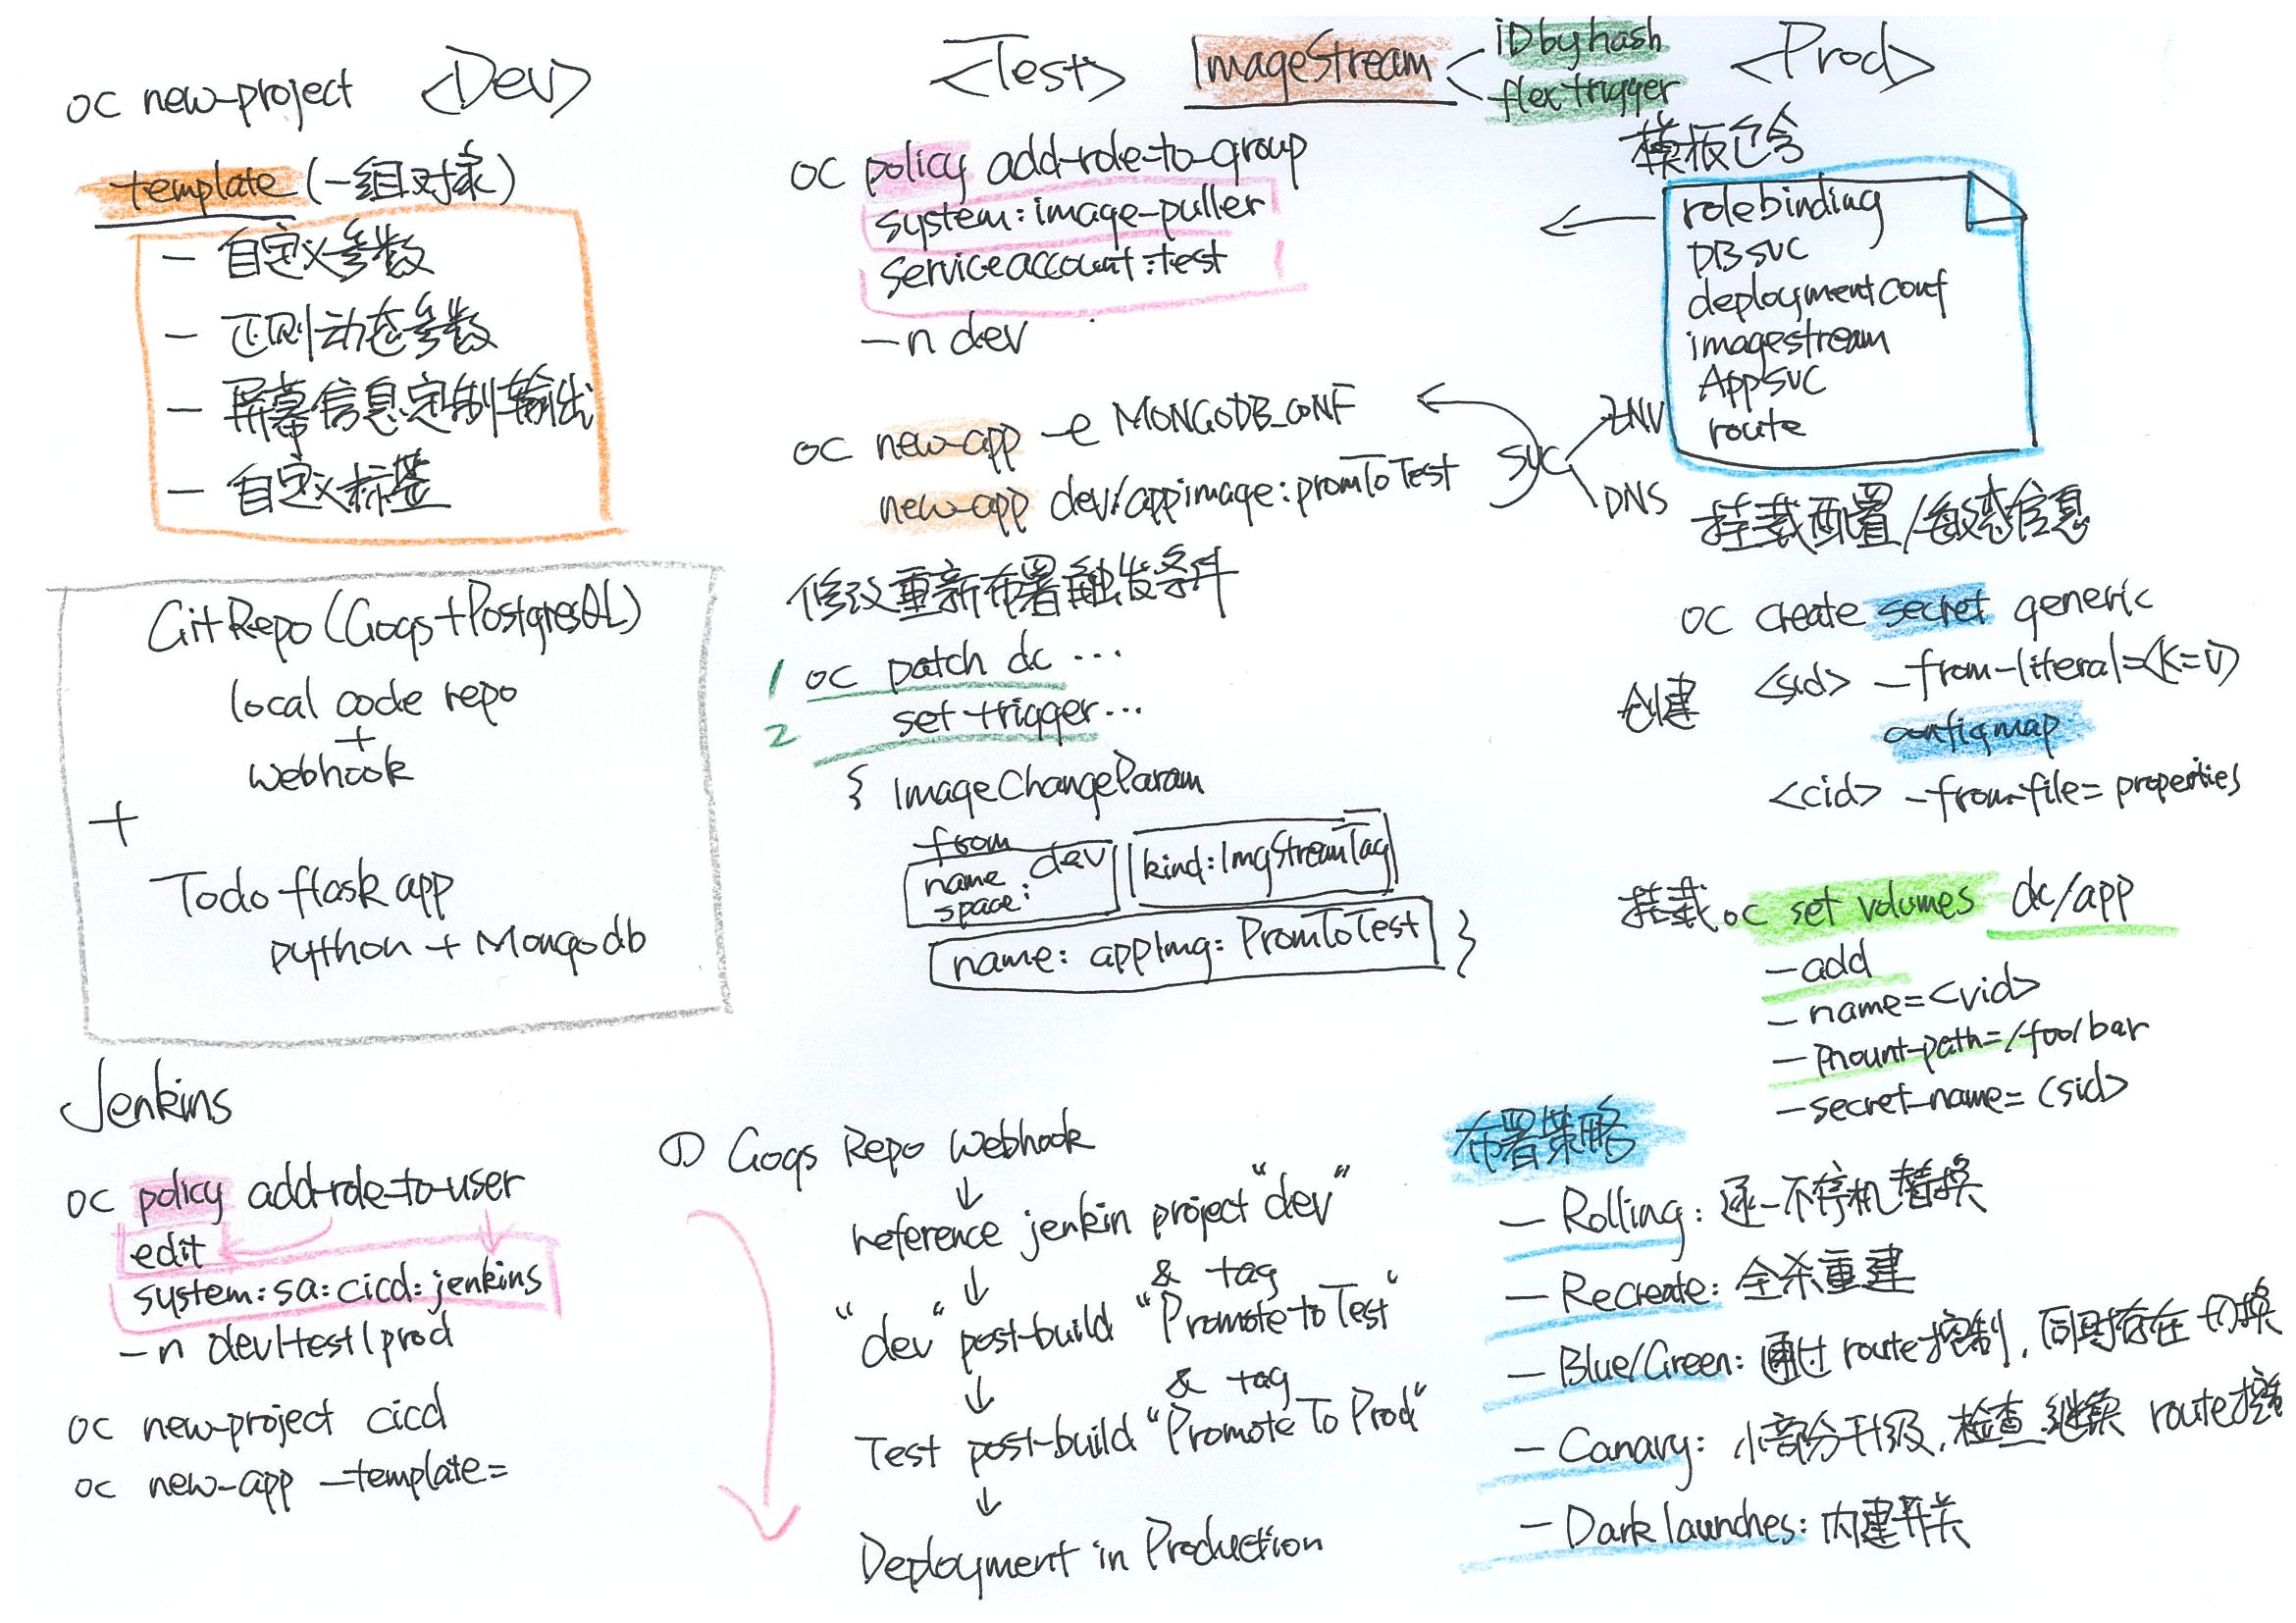 oc new-project <Dev>
template (一组对象)
- 自定义参数
- 正则动态参数
- 屏幕信息定制输出
- 自定义标签
GitRepo (Gogs+PostgresQL)
local code repo
+
webhook
+
Todo flask app
python + Mongodb
Jenkins
oc policy add-role-to-user
edit
system:sa:cicd:jenkins
-n dev|test|prod
oc new-project cicd
oc new-app -template=
<Test>
ImageStream
iDbyhash
flex trigger
oc policy add-role-to-group
system:image-puller
serviceaccount:test
-n dev
oc new-app -e MONGODB_CONF
new-app dev/appimage:promToTest
svc
ENV
DNS
修改重新布署触发条件
1 oc patch dc ...
2 set trigger...
{ ImageChangeParam
from
name space: dev
kind:ImgStreamTag
name: appImg: PromToTest }
① Gogs Repo Webhook
↓
reference jenkin project "dev"
↓ & tag
"dev" post-build "Promote to Test"
↓ & tag
Test post-build "Promote To Prod"
↓
Deployment in Production
<Prod>
模板包含
rolebinding
DB svc
deploymentConf
imagestream
App svc
route
挂载配置/敏感信息
oc create secret generic
创建 <sid> -from-literal=<k=v>
configmap
<cid> -from-file= properties
挂载 oc set volumes dc/app
-add
-name=<vid>
-mount-path=/foo/bar
-secret-name=<sid>
布署策略
- Rolling: 逐一不停机替换
- Recreate: 全杀重建
- Blue/Green: 通过 route控制, 同时存在 切换
- Canary: 小部分升级, 检查 继续 route控制
- Dark launches: 内建开关